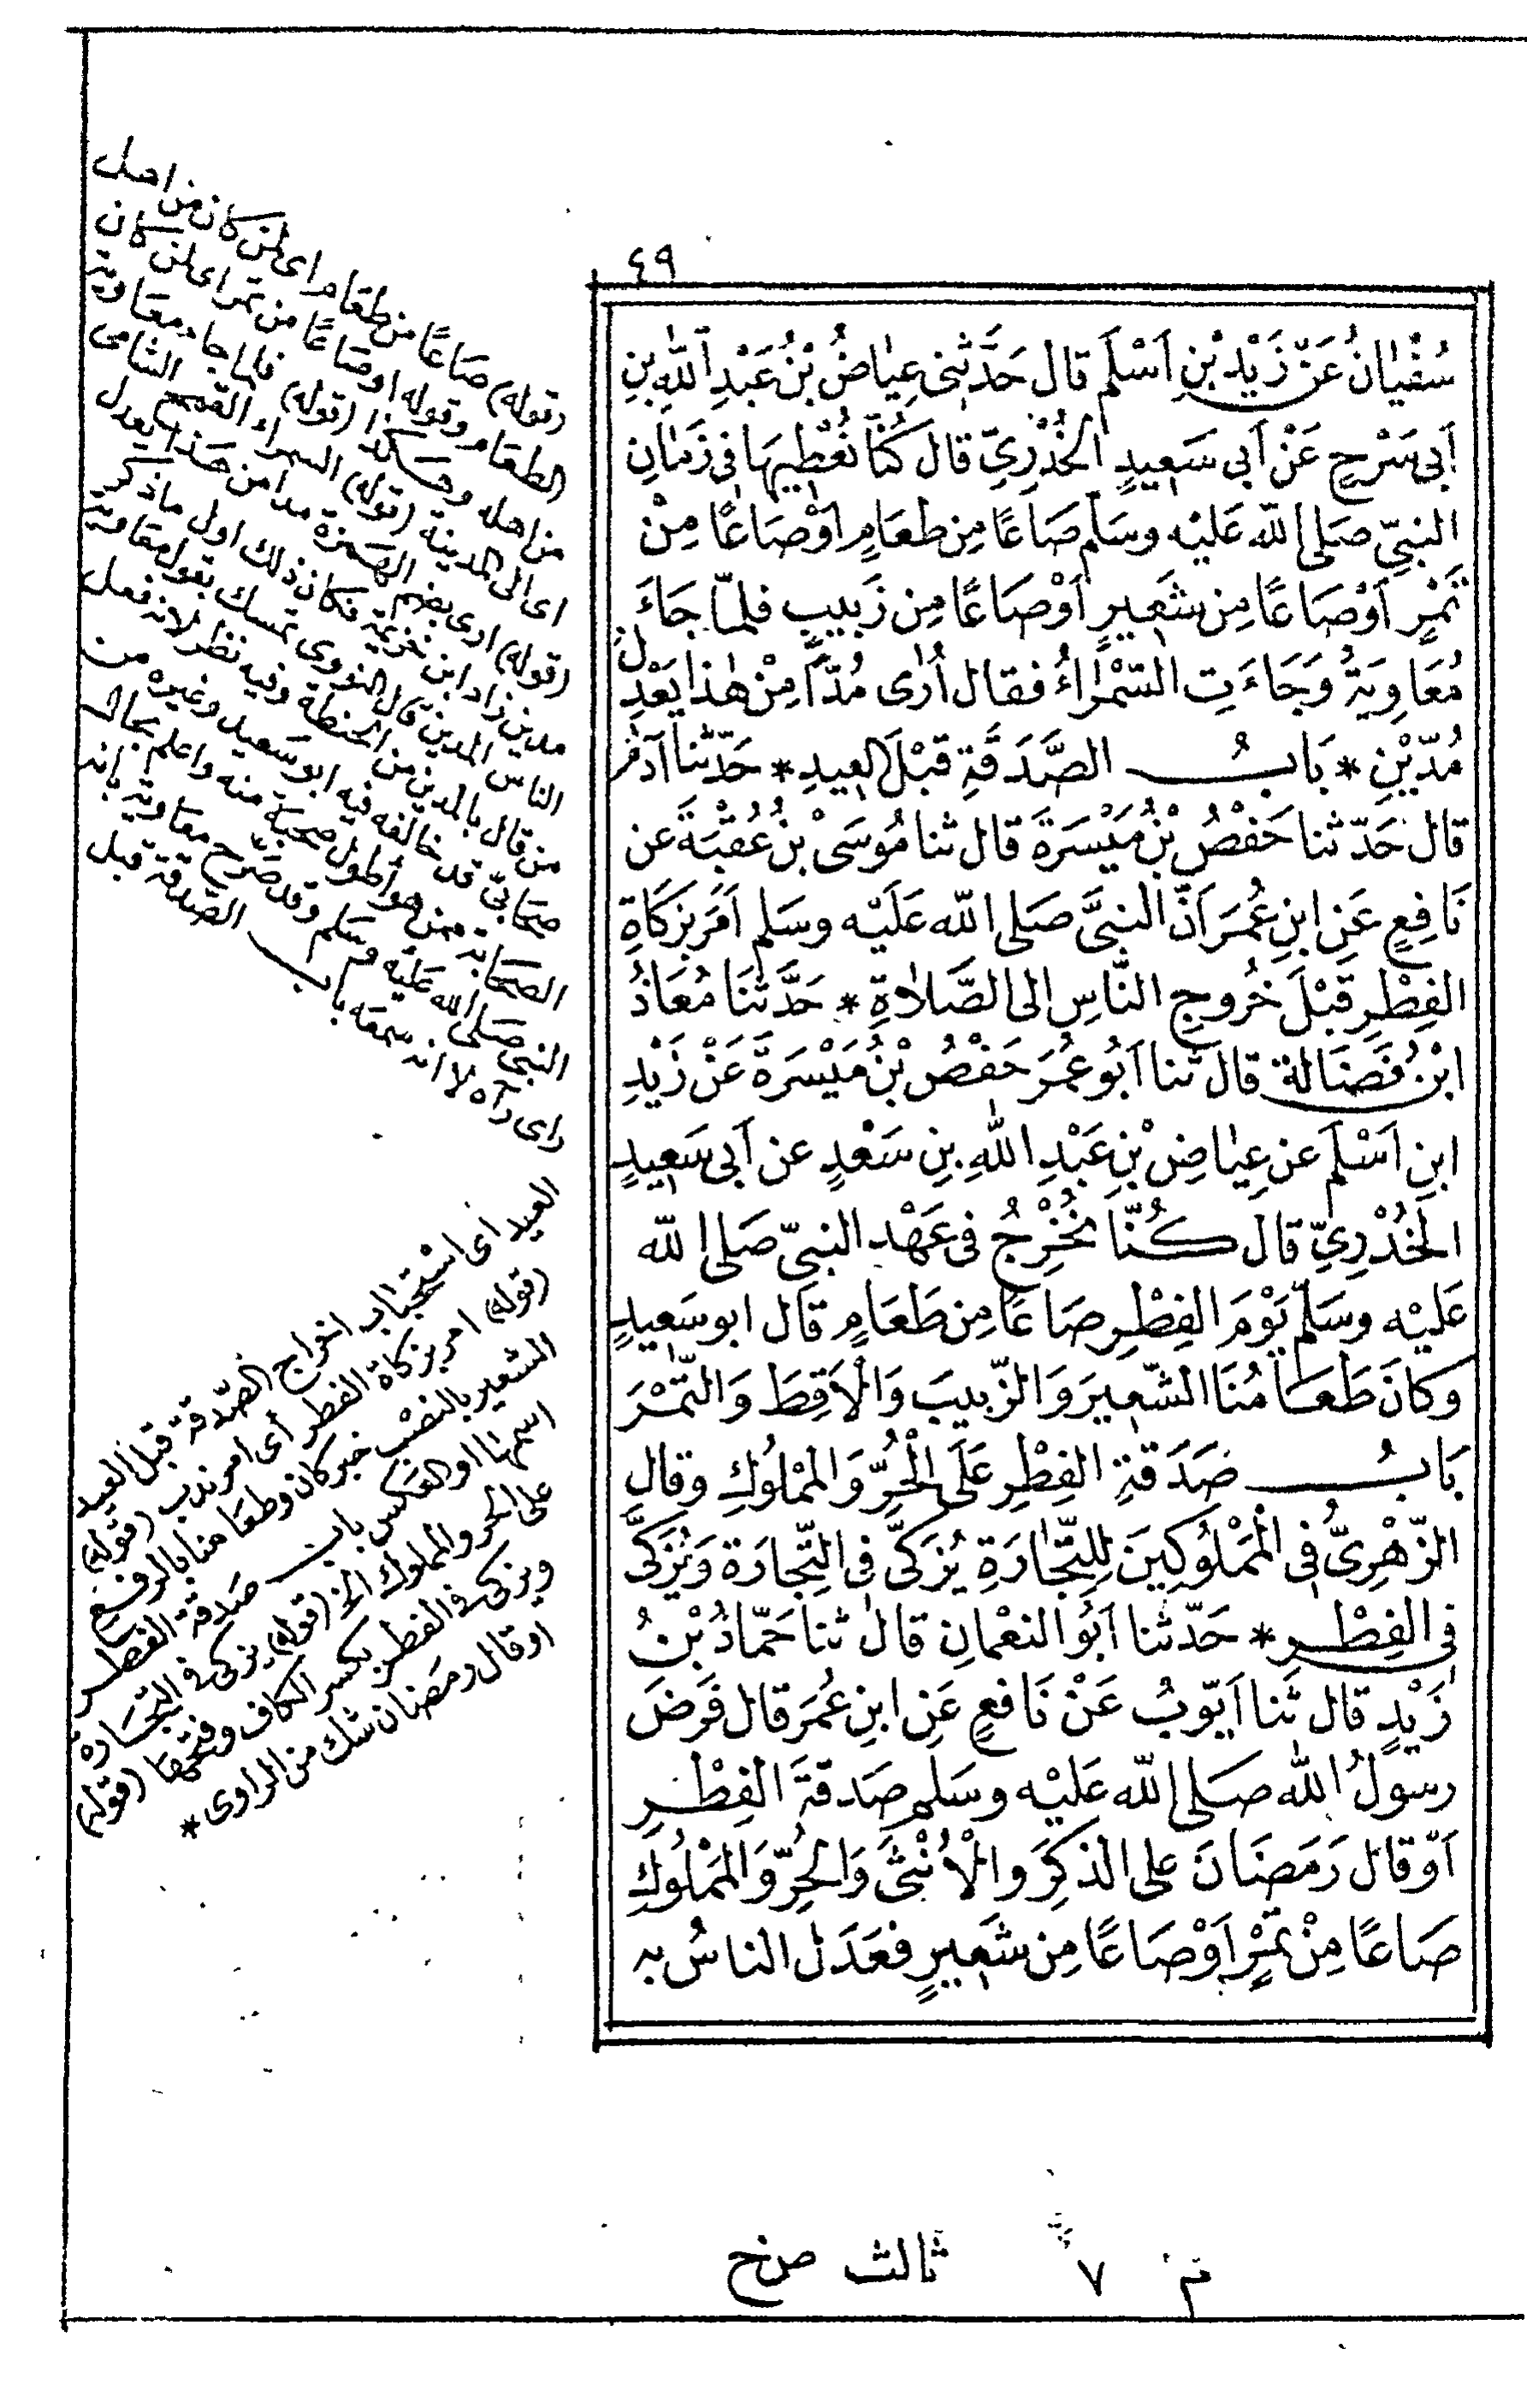 ٤٩
سُفْيٰانُ عَنْ زَيْدِ بْنِ اَسْلَمَ قال حَدَّثَنِى عِيٰاضُ بْنُ عَبْدِ اللّٰهِ بنِ
اَبِى سَرْحٍ عَنْ اَبى سَعِيدٍ الخُدْرِىّ قالَ كُنَّا نُعْطِيهَا فى زَمٰانِ
النبىِّ صَلى اللّه عَليْه وسَلم صَاعًا مِن طعَامٍ اَوْصَاعًا مِنْ
تَمْرٍ اَوْصَاعًا مِن شَعِيرٍ اَوْصَاعًا مِن زَبيبٍ فلمّا جَاءَ
مُعَاوِيَةُ وَجَاءَتِ السَّمْراءُ فقال اُرٰى مُدًّا مِنْ هٰذا يَعْدِلُ
مُدَّيْنِ * بَابُ الصَّدَقَةِ قَبْلَ العِيدِ * حَدّثنا آدمُ
قال حَدّثنا حَفْصُ بْنُ مَيْسَرَةَ قال ثنا مُوسَى بْنُ عُقْبَةَ عن
نَافِعٍ عَنِ ابنِ عُمَرَ اَنَّ النبىَّ صَلى اللّه عَلَيْه وسَلم اَمَرَ بزَكَاةِ
الفِطْرِ قَبْلَ خُروجِ النَّاسِ الى الصَّلاةِ * حَدَّثنَا مُعَاذُ
ابْنُ فَضَالة قال ثنا اَبُو عُمَرَ حَفْصُ بْنُ مَيْسَرةَ عَنْ زَيْدِ
ابنِ اَسْلَمَ عن عِيٰاضِ بْنِ عَبْدِ اللّٰهِ بنِ سَعْدٍ عن اَبى سَعِيدٍ
الخُدْرِىّ قال كُنَّا نُخْرِجُ فى عَهْدِ النبىّ صَلى اللّه
عَليْه وسَلّم يَوْمَ الفِطْرِ صَاعًا مِن طَعَامٍ قال ابو سَعِيدٍ
وكانَ طَعَامُنَا الشّعِيرَ وَالزّبيبَ وَالْاَقِطَ وَالتَّمْرَ
بَابُ صَدَقةِ الفِطْرِ عَلَى الْحُرِّ وَالمَمْلُوكِ وقال
الزّهْرِىُّ فى الْمَمْلُوكِينَ لِلتِّجٰارَةِ يُزَكَّى فى التِّجارَة وَيُزَكَّى
فى الفِطْرِ * حَدّثنا اَبُو النعْمانِ قال ثنا حَمّادُ بْنُ
زَيْدٍ قال ثنا اَيّوبُ عَنْ نَافعٍ عَنِ ابنِ عُمَرَ قال فَرَضَ
رسولُ اللّٰه صَلى اللّه عَليْه وسَلم صَدقةَ الفِطْرِ
اَوْ قال رَمَضَانَ على الذكَرِ والْاُنْثَى وَالحُرِّ وَالمَمْلُوكِ
صَاعًا مِنْ تَمْرٍ اَوْصَاعًا مِن شَعِيرٍ فعَدَلَ الناسُ به
(قوله) صَاعًا من طعَام اى لمن كان من اهل
الطعام وقوله اوصَاعًا من تمر اى لمن كان
من اهله وهكذا (قوله) فلما جاء معاوية
اى الى المدينة (قوله) السمراء القمح الشامى
(قوله) ارى بضم الهمزة مدا من هذا يعدل
مدين زاد ابن خزيمة فكان ذلك اول ما ذكر
الناس المدين قال النووى تمسك بقول معاوية
من قال بالمدين من الحنطة وفيه نظر لانه فعل
صحابىّ قد خالفه فيه ابو سَعيد وغيره من
الصحابة ممن هو أطول صحبة منه واعلم بحال
النبى صَلى الله عَليْه وسَلم وقد صَرّح معاوية بانه
راى رآه لا انه سمعه باب الصّدقة قبل
العيد اى استحباب اخراج الصّدقة قبل العيد
(قوله) امر بزكاة الفطر أى امر ندب (قوله)
الشعير بالنصْب خبر كان وطعَامنا بالرفع
اسمها او العكس باب صَدقة الفطر
على الحر والمملوك الخ (قوله) يزكى فى التجارة
ويزكى فى الفطر بكسر الكاف وفتحها (قوله)
او قال رمَضان شك من الراوى *
م ٧ ثالث ص خ